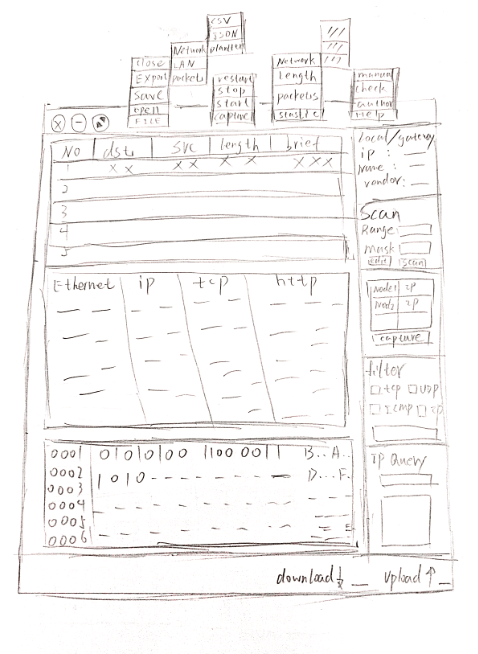 CSV
JSON
plantext
Network
LAN
packets
close
Export
Save
open
FILE
restart
stop
start
capture
Network
length
packets
statstic
manual
check
author
help
NO dst src length brief
1 x x x x x x x x x
2
3
4
5
Ethernet ip tcp http
0001 0 1 0 1 0 1 0 0 1 1 0 0 0 0 1 1 B..A..
0002 1 0 1 0 D...F.
0003
0004
0005
0006
local/gateway
ip :
Name :
vendor:
Scan
Range:
mask:
Edit Scan
Node1 IP
Node2 IP
capture
filter
tcp UDP
ICMP IP
IP Query
download↓ upload↑